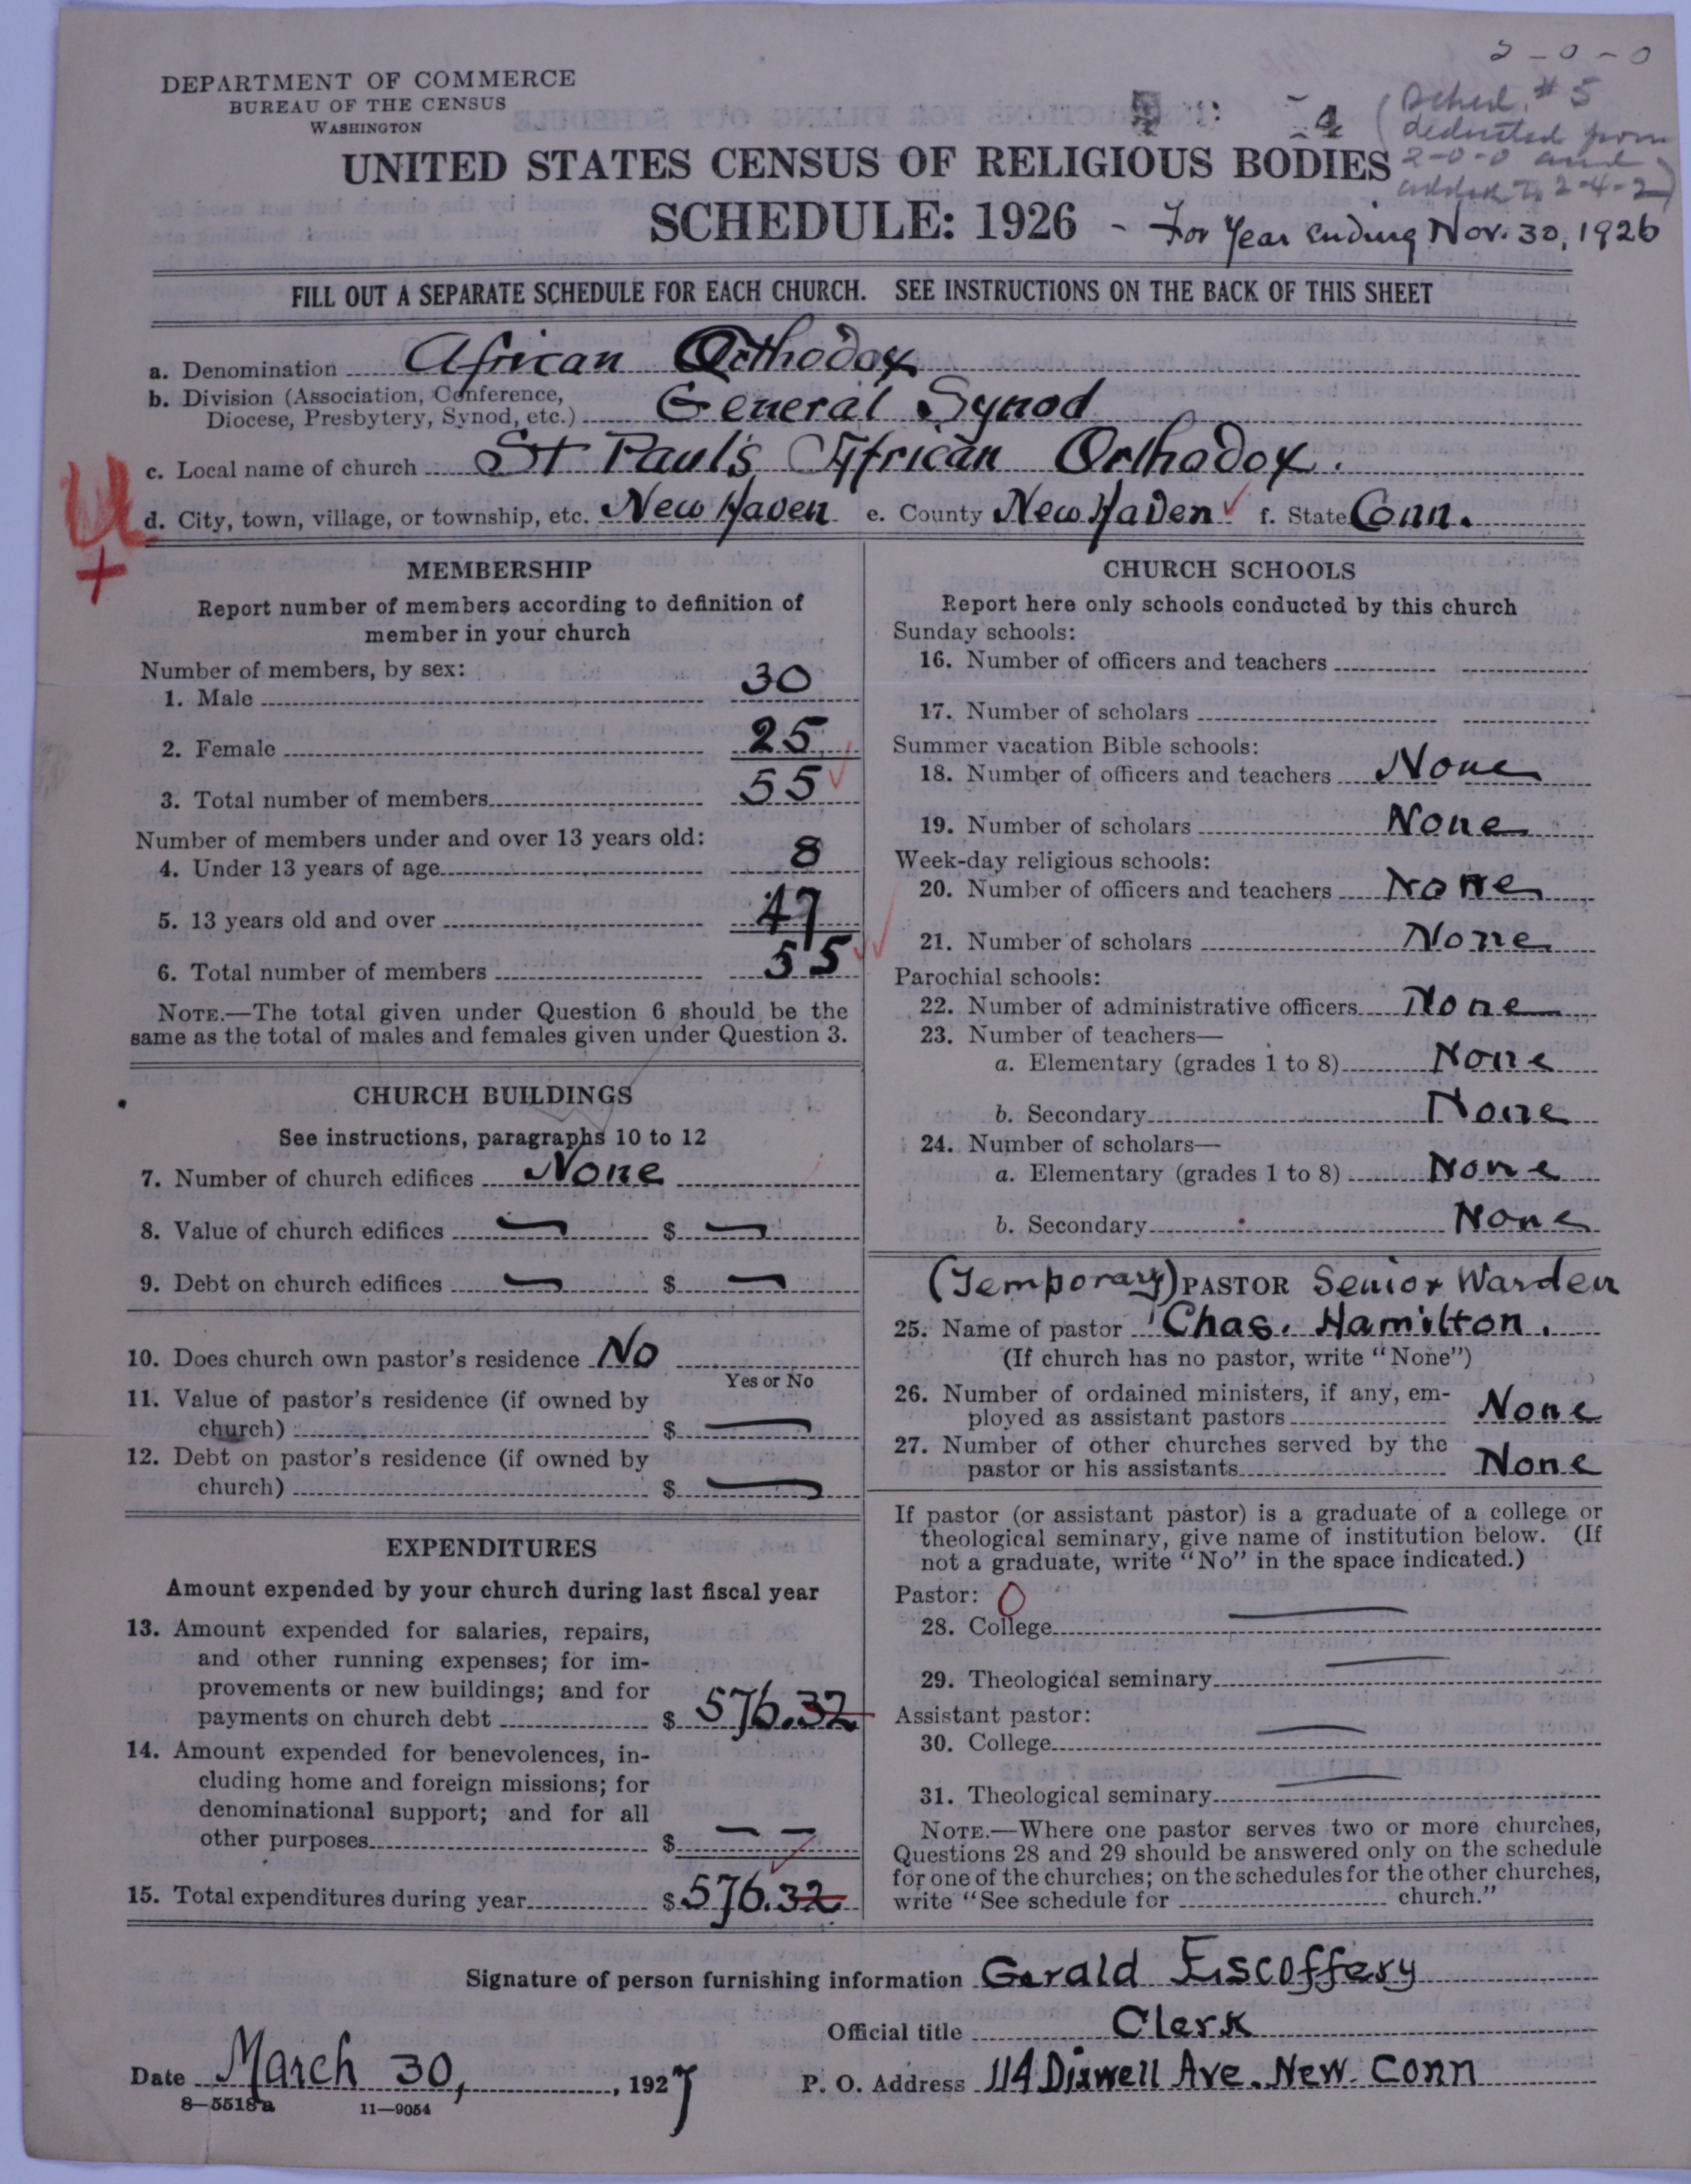 2-0-0
DEPARTMENT OF COMMERCE
BUREAU OF THE CENSUS
WASHINGTON
4
(Sched. #5
deducted from
2-0-0 and
added to 2-4-2)
UNITED STATES CENSUS OF RELIGIOUS BODIES
SCHEDULE: 1926 - For Year ending Nov. 30, 1926
FILL OUT A SEPARATE SCHEDULE FOR EACH CHURCH. SEE INSTRUCTIONS ON THE BACK OF THIS SHEET
a. Denomination African Orthodox
b. Division (Association, Conference,
Diocese, Presbytery, Synod, etc.) General Synod
c. Local name of church St Paul's African Orthodox.
U
+
d. City, town, village, or township, etc. New Haven e. County New Haven ✓ f. State Conn.
MEMBERSHIP
Report number of members according to definition of
member in your church
Number of members, by sex:
1. Male 30
2. Female 25
3. Total number of members 55 ✓
Number of members under and over 13 years old:
4. Under 13 years of age 8
5. 13 years old and over 47
6. Total number of members 55 ✓✓
NOTE.—The total given under Question 6 should be the
same as the total of males and females given under Question 3.
CHURCH BUILDINGS
See instructions, paragraphs 10 to 12
7. Number of church edifices None
8. Value of church edifices — $ —
9. Debt on church edifices — $ —
10. Does church own pastor's residence No
Yes or No
11. Value of pastor's residence (if owned by
church) $ —
12. Debt on pastor's residence (if owned by
church) $ —
EXPENDITURES
Amount expended by your church during last fiscal year
13. Amount expended for salaries, repairs,
and other running expenses; for im-
provements or new buildings; and for
payments on church debt $ 576.32
14. Amount expended for benevolences, in-
cluding home and foreign missions; for
denominational support; and for all
other purposes $ — —
15. Total expenditures during year $ 576.32
CHURCH SCHOOLS
Report here only schools conducted by this church
Sunday schools:
16. Number of officers and teachers
17. Number of scholars
Summer vacation Bible schools:
18. Number of officers and teachers None
19. Number of scholars None
Week-day religious schools:
20. Number of officers and teachers None
21. Number of scholars None
Parochial schools:
22. Number of administrative officers None
23. Number of teachers—
a. Elementary (grades 1 to 8) None
b. Secondary None
24. Number of scholars—
a. Elementary (grades 1 to 8) None
b. Secondary None
(Temporary) PASTOR Senior Warden
25. Name of pastor Chas. Hamilton.
(If church has no pastor, write "None")
26. Number of ordained ministers, if any, em-
ployed as assistant pastors None
27. Number of other churches served by the
pastor or his assistants None
If pastor (or assistant pastor) is a graduate of a college or
theological seminary, give name of institution below. (If
not a graduate, write "No" in the space indicated.)
Pastor: 0
28. College —
29. Theological seminary —
Assistant pastor:
30. College —
31. Theological seminary —
NOTE.—Where one pastor serves two or more churches,
Questions 28 and 29 should be answered only on the schedule
for one of the churches; on the schedules for the other churches,
write "See schedule for church."
Signature of person furnishing information Gerald Escoffery
Official title Clerk
Date March 30, 1927 P. O. Address 114 Dixwell Ave. New. Conn
8—5518a 11—9054